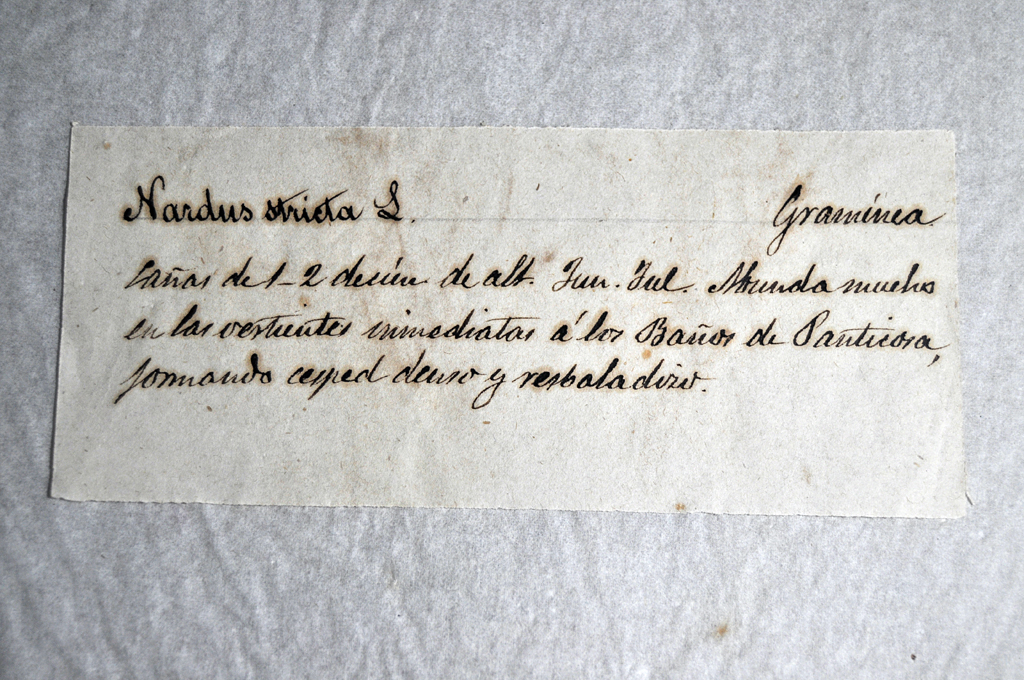 Nardus stricta L. Gramínea.
Cañas de 1-2 decím de alt. Jun. Jul. Abunda mucho
en las vertientes inmediatas á los Baños de Panticosa,
formando cesped denso y resbaladizo.